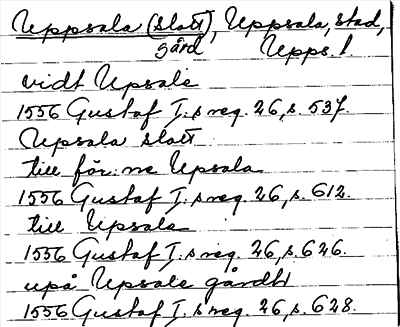 Uppsala (slott), Uppsala, stad,
gård Upps. l.
vidt Upsale
1556 Gustaf I:s reg. 26, s. 537.
Upsala slott
till för:ne Upsala
1556 Gustaf I:s reg. 26, s. 612.
till Upsala
1556 Gustaf I:s reg. 26, s. 626.
upå Upsale gårdh
1556 Gustaf I:s reg. 26, s. 628.